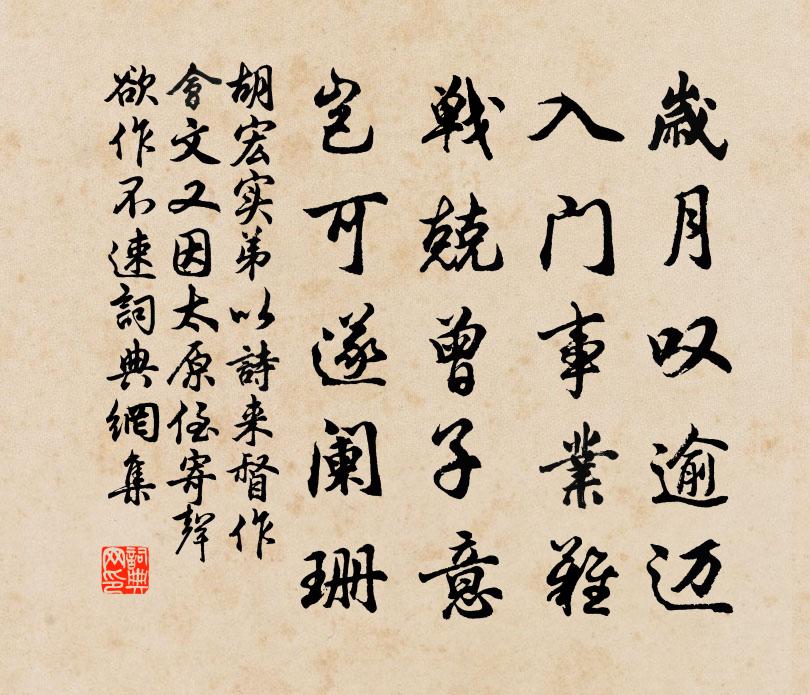 歲月叹逾迈
入门事業難
戰兢曾子意
岂可遂阑珊
胡宏实弟以詩来督作
會文又因太原侄寄聲
欲作不速詞典網集
詞典网印